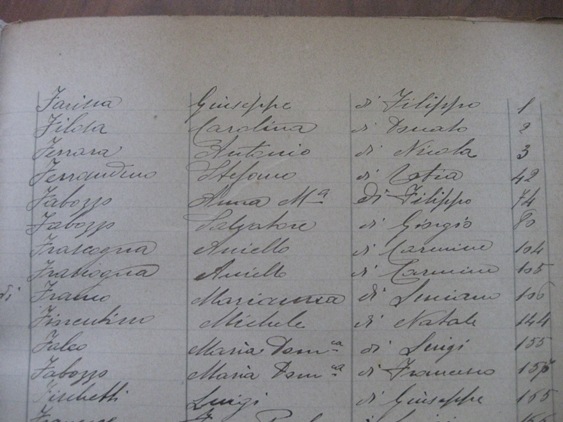 Farina Giuseppe di Filippo 1
Filosa Carolina di Donato 2
Ferrara Antonio di Nicola 3
Ferrandino Stefano di 42
Fabozzo Anna Mª di Filippo 74
Fabozzo Salvatore di Giorgio 80
Frascogna Aniello di Carmine 104
Frascogna Aniello di Carmine 105
di Franco Marianna di Luciano 106
Fiorentino Michele di Natale 144
Falco Maria Domca di Luigi 155
Fabozzo Maria Domca di Francesco 157
Luigi di Giuseppe 155